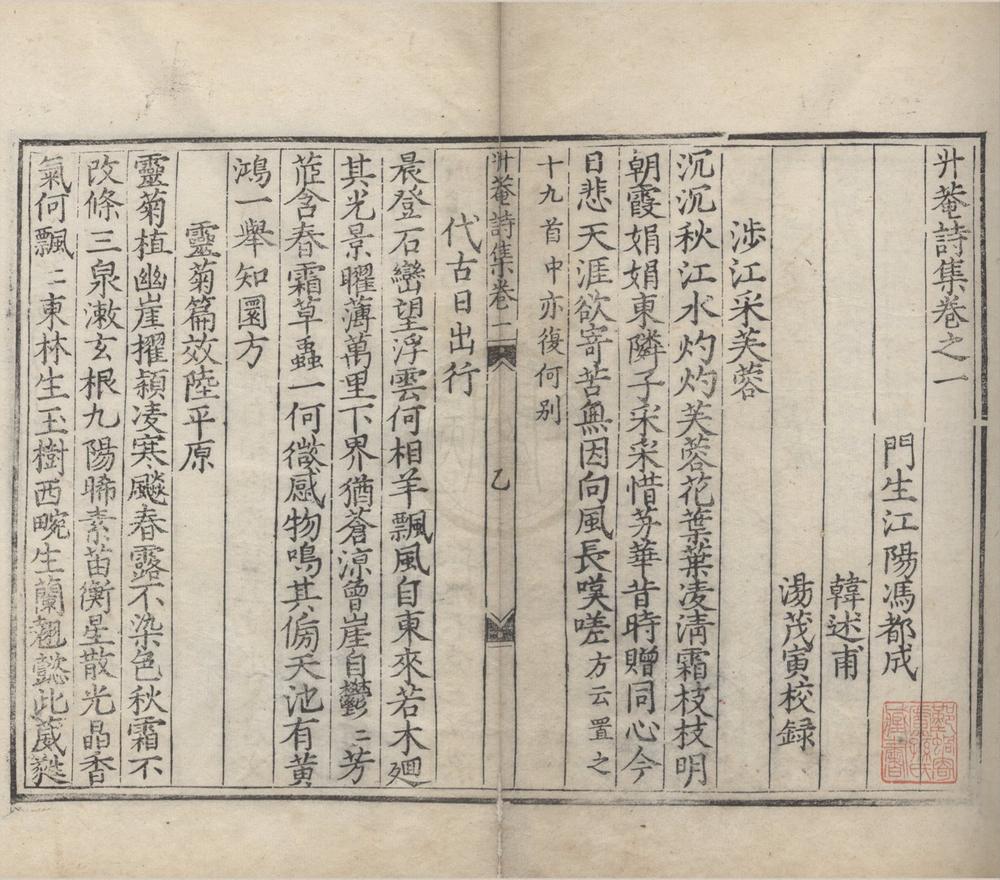 升菴詩集卷之一
門生江陽馮都成
韓述甫
湯茂寅校録
涉江采芙蓉
沉沉秋江水灼灼芙蓉花葉葉凌清霜枝枝明
朝霞娟娟東隣子采采惜芳華昔時贈同心今
日悲天涯欲寄苦無因向風長嘆嗟方云置之
十九首中亦復何别
升菴詩集卷一
乙
代古日出行
晨登石巒望浮雲何相羊飄風自東來若木廻
其光景曜薄萬里下界猶蒼涼曾崖自鬱二芳
茝含春霜草蟲一何微感物鳴其傍天池有黄
鴻一舉知圜方
靈菊篇效陸平原
靈菊植幽崖擢穎凌寒飈春露不染色秋霜不
改條三泉漱玄根九陽晞素苗衡星散光晶香
氣何飄二東林生玉樹西畹生蘭翹懿此葳蕤